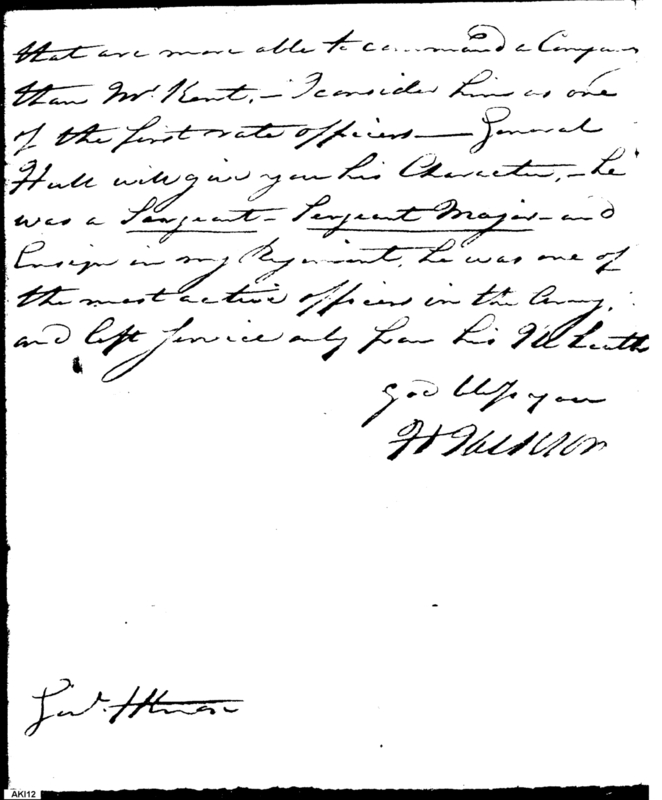 that are more able to command a Company
than Mr. Kent,— I consider him as one
of the first rate officers— General
Hull will give you his Character,— he
was a Sargeant— Sergeant Major— and
Ensign in my Regiment, he was one of
the most active officers in the Army,
and left service only from his Ill health
God bless you
H Jackson
Genl. H Knox
AKI12